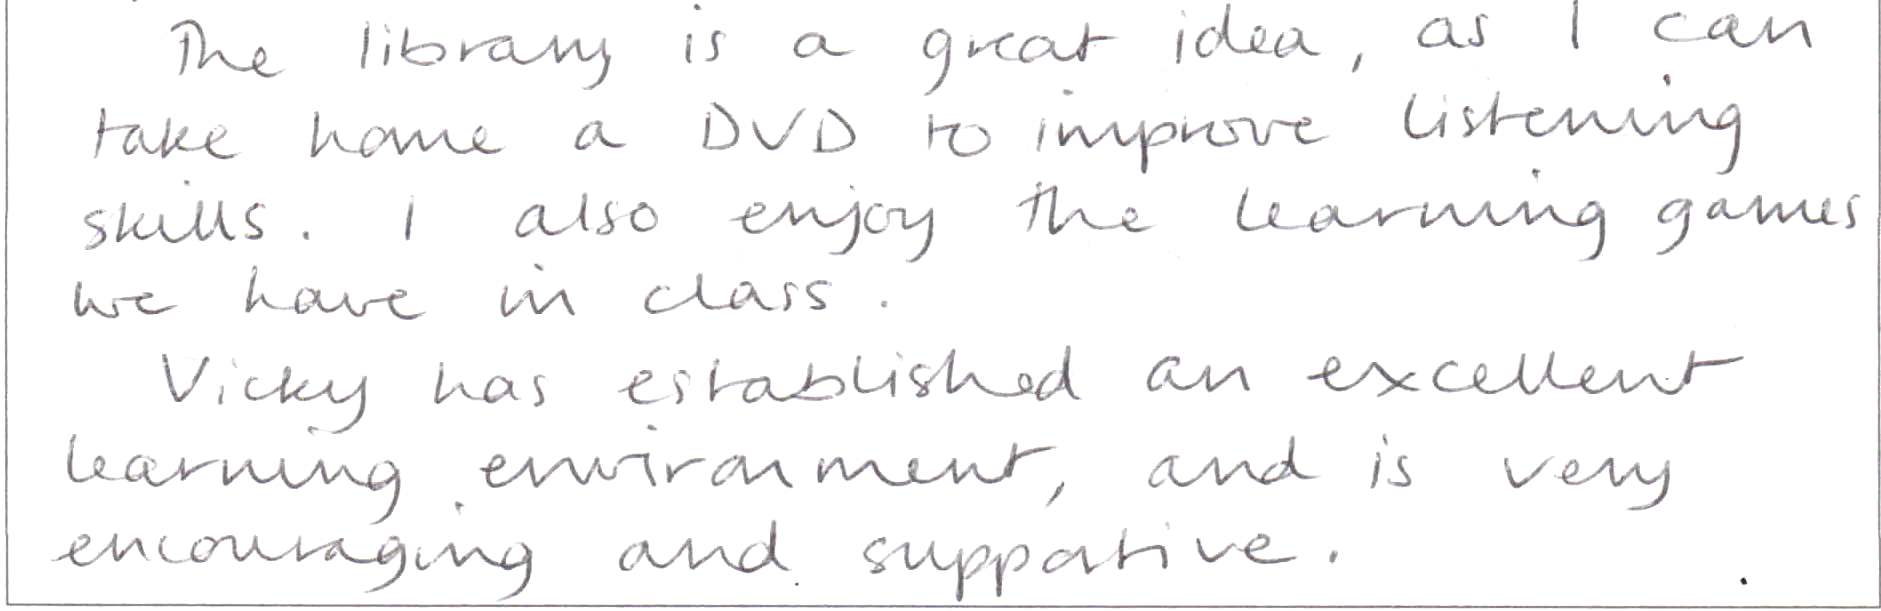 The library is a great idea, as I can
take home a DVD to improve listening
skills. I also enjoy the learning games
we have in class.
Vicky has established an excellent
learning environment, and is very
encouraging and supportive.